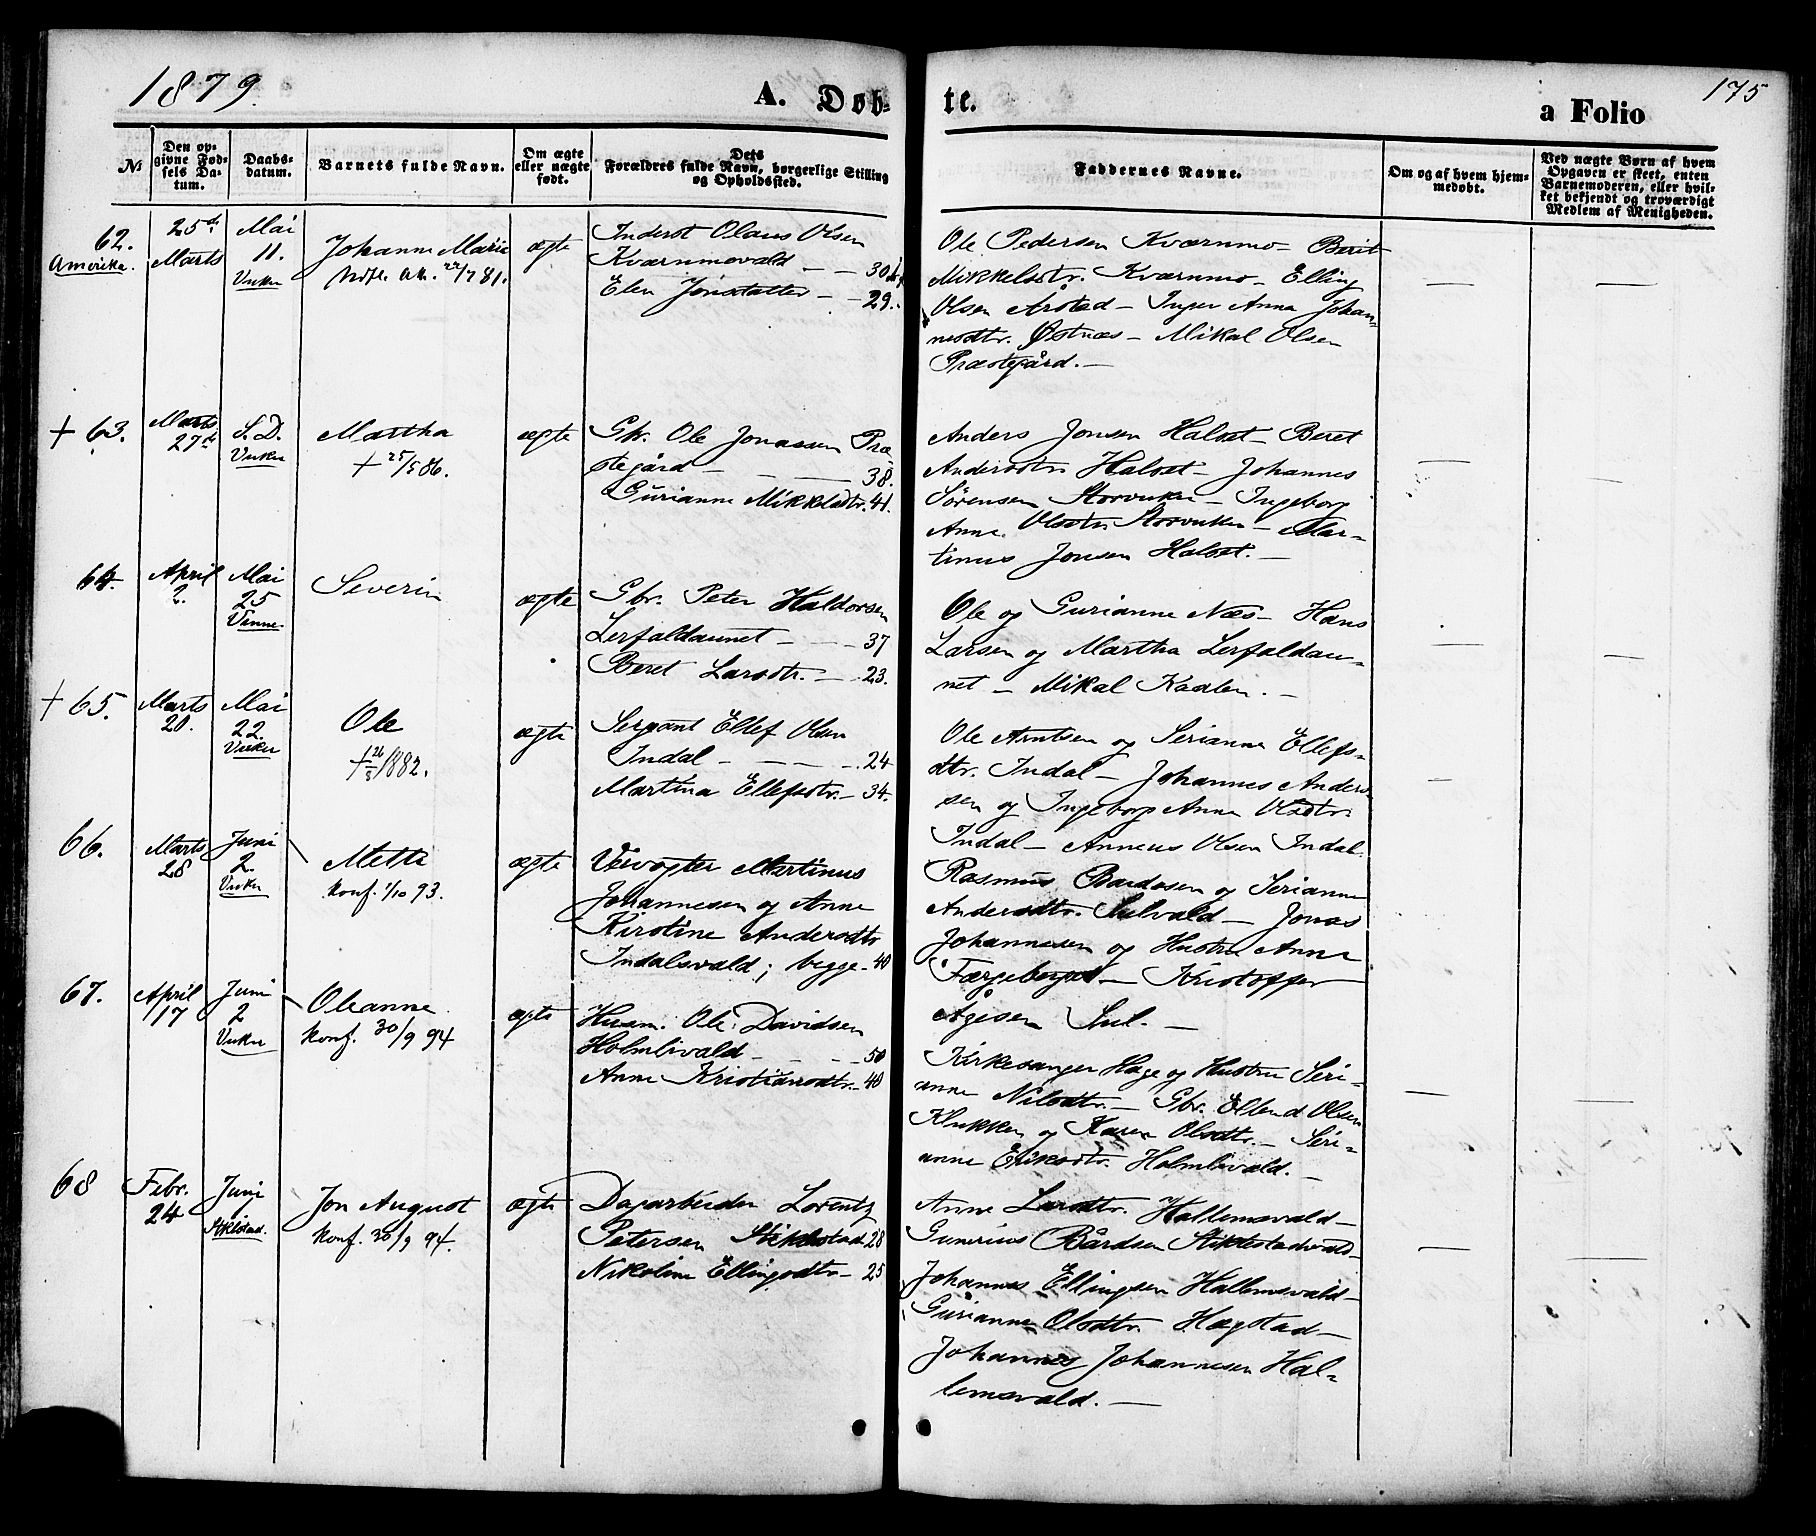 1879.
A. Døb-
te.
a Folio
175
№
Den op-
givne Fød-
sels Da-
tum.
Daabs-
datum.
Barnets fulde Navn.
Om ægte
eller uægte
født.
Dets
Forældres fulde Navn, borgerlige Stilling
og Opholdssted.
Faddernes Navne.
Om og af hvem hjem-
medøbt.
Ved uægte Børn af hvem
Opgaven er skeet, enten
Barnemoderen, eller hvil-
ket bekjendt og troværdigt
Medlem af Menigheden.
62.
Amerika.
25de
Marts
Mai
11.
Vuku
Johanne Marie
22/7 81.
ægte
Inderst Olaus Olsen
Kværnmovald - - 30
Elen Jonsdatter - - 29.
Ole Pedersen Kværnmo - Berit
Mikkelsdtr. Kværnmo - Elling
Olsen Årstad - Inger Anna Johan-
nesdtr. Østnæs - Mikal Olsen
Præstegård. -
+ 63.
Marts
27de
S. D.
Vuku
Martha
+ 25/5 86.
ægte
Gbr. Ole Jonassen Præ-
stegård - - - 38.
Gurianne Mikkelsdtr. 41.
Anders Jonsen Halset - Beret
Andersdtr. Halset - Johannes
Sørensen Storvuku - Ingeborg
Anne Olsdtr. Storvuku - Mar-
tinus Jonsen Halset. -
64.
April
2.
Mai
25
Vinne
Severin
ægte
Gbr. Peter Haldorsen
Lerfaldaunet - - - 37
Beret Larsdtr. - - 23.
Ole og Gurianne Næs - Hans
Larsen og Martha Lerfaldau-
net - Mikal Kaalen. -
+ 65.
Marts
20.
Mai
22.
Vuku
Ole
+ 26/5 1882.
ægte
Sergant Ellef Olsen
Indal - - - - 24
Martina Ellefsdtr. - 34.
Ole Arntsen og Serianna Ellefs-
dtr. Indal - Johannes Ander-
sen og Ingeborg Anna Olsdtr.
Indal - Anneus Olsen Indal.
66.
Marts
28
Juni
2.
Vuku
Mette
konf. 1/10 93.
ægte
Veivogter Martinus
Johannesen og Anne
Kirstine Andersdtr.
Indalsvald; begge - 40
Rasmus Bardosen og Serianna
Andersdtr. Sulvald - Jonas
Johannesen og Hustru Anne
Færgeberget - Kristoffer
Ågesen Sul. -
67.
April
17
Juni
2
Vuku
Oleanne.
konf. 30/9 94
ægte
Husm. Ole Davidsen
Holmlivald - - - - 50
Anne Kristiansdtr. - 40
Kirkesanger Hage og Hustru Seri-
anne Nilsdtr. - Gbr. Ellend Olsen
Klukken og Karen Olsdtr. - Seri-
anne Eriksdtr. Holmlivald. -
68
Febr.
24
Juni
1
Stiklestad.
Jon August
konf. 30/9 94.
ægte
Dagarbeider Lorentz
Petersen Stiklestad 28
Nikoline Ellingsdtr. - 25
Anne Larsdtr. Hallemsvald -
Gunerius Bårdsen Stiklestadvald -
Johannes Ellingsen Hallemsvald -
Gurianne Olsdtr. Hægstad -
Johannes Johannesen Hal-
lemsvald. -